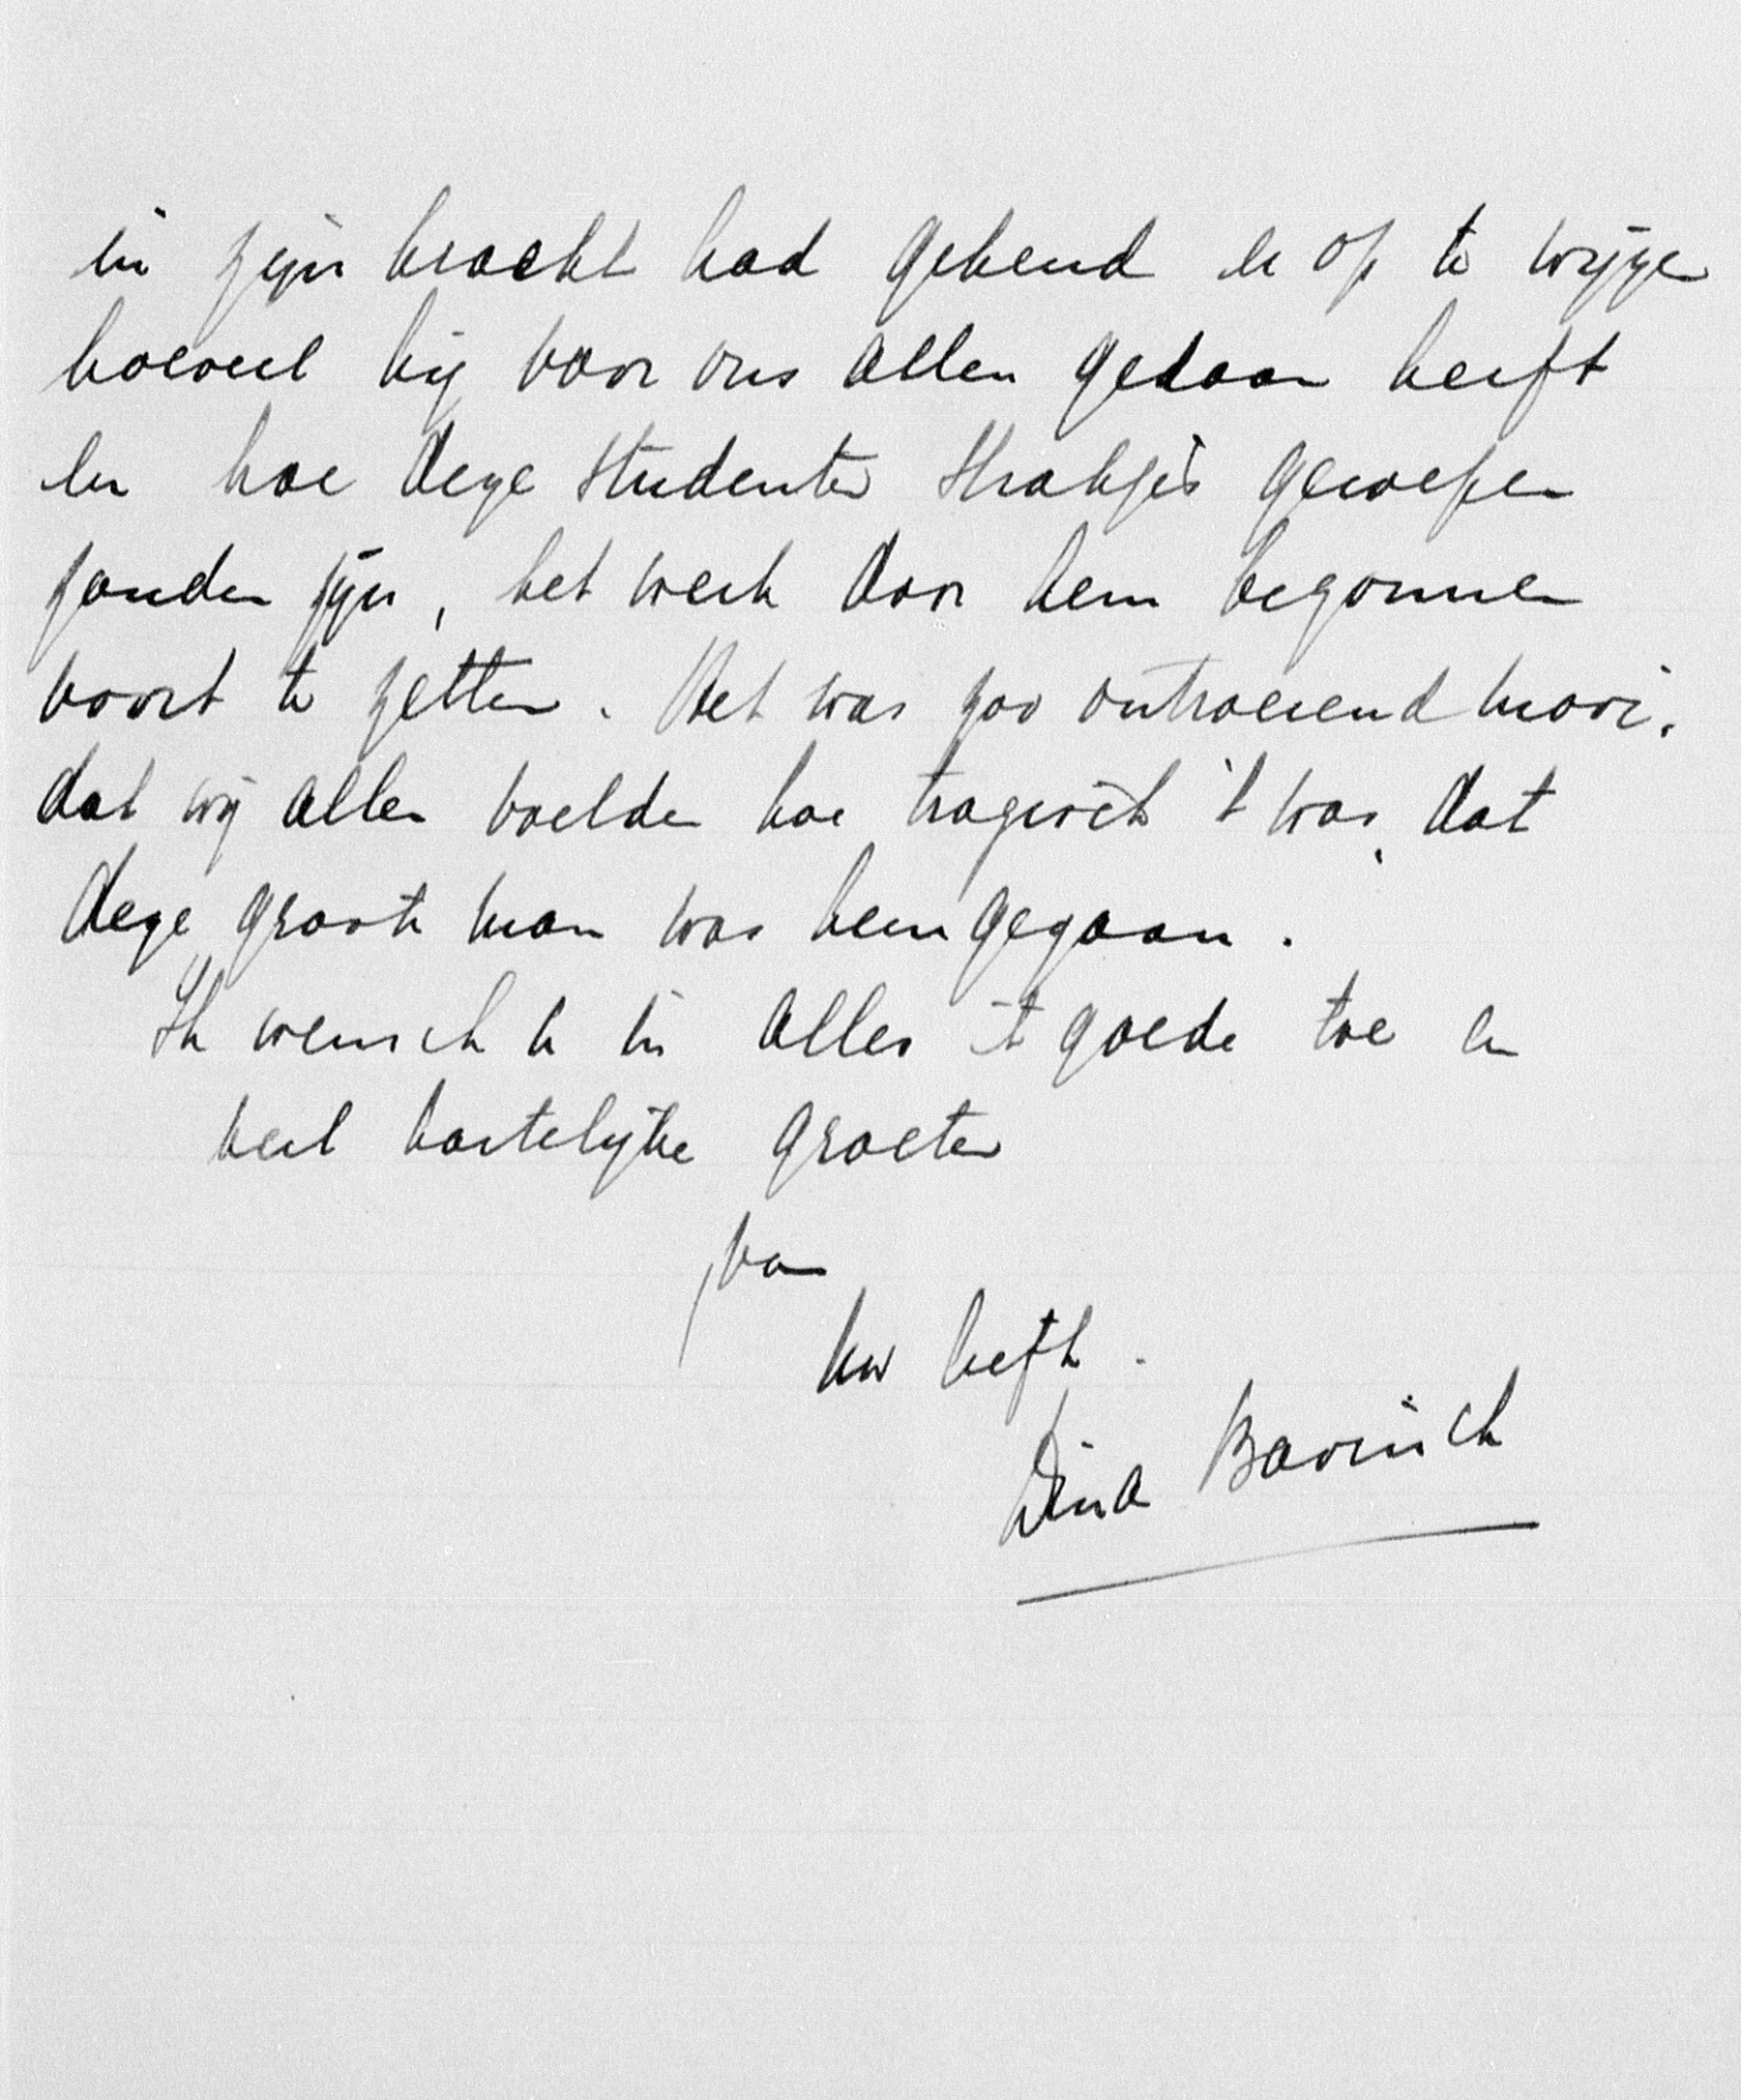 in zijn kracht had gekend er op te wijzen
hoeveel hij voor ons allen gedaan heeft
en hoe deze studenten strakjes geroepen
zouden zijn, het werk door hem begonnen
voort te zetten. Het was zoo ontroerend mooi,
dat wij allen voelden hoe tragisch 't was, dat
deze groote man was heengegaan.
Ik wensch u in alles 't goede toe en
veel hartelijke groeten
van
Uw
Dina Bavinck